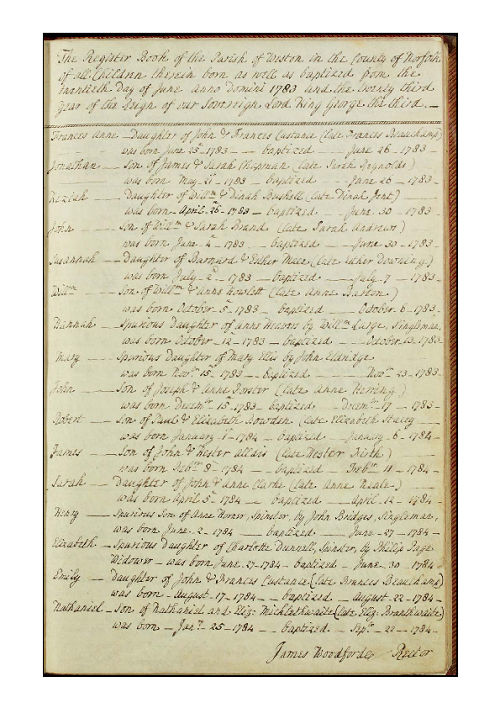 The Register Book of the Parish of Weston in the County of Norfolk
of all Children therein born as well as baptized from the
twentieth Day of June anno Domini 1783 and the twenty third
Year of the Reign of our Sovereign Lord King George the third. —
Frances Anne — Daughter of John & Frances Custance (late Frances Beauchamp)
was born June 23d - 1783 — baptized — June 26 - 1783 -
Jonathan — Son of James & Sarah Chapman (late Sarah Reynolds)
was born May 21st - 1783 - baptized - June 26 - 1783 -
Keziah — Daughter of Willm & Dinah Bushell (late Dinah
was born April 26th - 1783 - baptized - June 30 - 1783 -
John — Son of Willm & Sarah Brand (late Sarah Andrew)
was born June 4th - 1783 - baptized — June 30 - 1783 -
Susannah — Daughter of Barnard & Esther
was born July 2d - 1783 - baptized — July 7 - 1783 -
Willm — Son of Willm & Anne Howlett (late Anne Barton)
was born October 5th - 1783 - baptized - October 6 - 1783 -
Hannah — Spurious Daughter of Anne by Willm Large, Singleman,
was born October - 12 - 1783 - baptized - October 13. 1783
Mary — Spurious Daughter of Mary Ellis by John Eldridge
was born Novr 15th 1783 - baptized — Novr 23 - 1783 -
John — Son of Joseph & Anne Forster (late Anne Herring)
was born Decemr 15th 1783 - baptized - Decemr 17 - 1783 -
Robert — Son of Paul & Elizabeth Bowden (late Elizabeth
was born January 1st - 1784 - baptized - January 6 - 1784 -
James — Son of John & Hester
was born Febry 8 - 1784 — baptized - Febry 10 - 1784 -
Sarah — Daughter of John & Anne Clarke (late Anne Neale)
was born April 5th 1784 — baptized — April 12 - 1784 -
Henry — Spurious Son of Anne Horner, Spinster, by John Bridges, Singleman,
was born June - 2 - 1784 — baptized — June - 27 - 1784 -
Elizabeth — Spurious Daughter of Charlotte Dunnell, Spinster, by Philip Page
Widower - was born June - 27 - 1784 - baptized - June 30 - 1784
Emily — Daughter of John & Frances Custance (late Frances Beauchamp)
was born - August - 17 - 1784 - baptized - August - 22 - 1784 -
Nathaniel — Son of Nathaniel and Eliz: Micklethwaite (late Eliz: Branthwaite)
was born - Janry 25 - 1784 — baptized — Sepr - 22 - 1784 -
James Woodforde, Rector